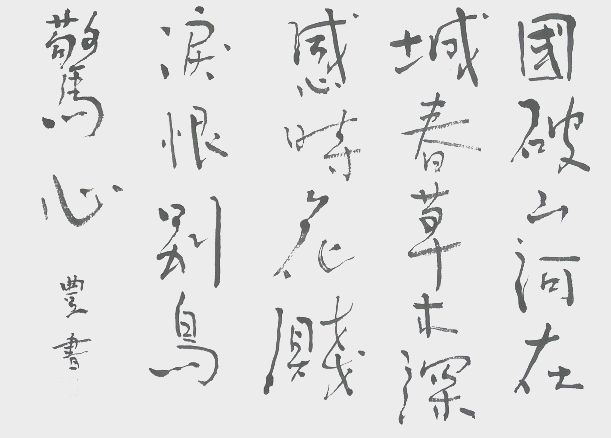 國破山河在
城春草木深
感時花濺
淚恨別鳥
驚心
豊書